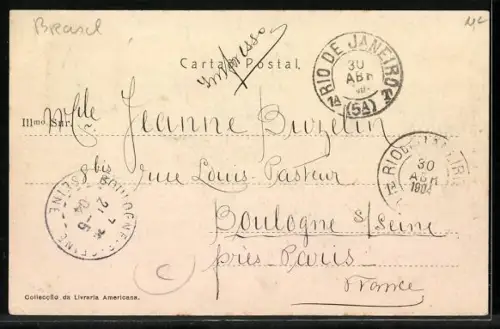 Brasil
Carta Postal
Impresso
RIO DE JANEIRO
30
ABR
1ª (5A) Tª
Illmo. Snr.
Mlle Jeanne Buzelin
8 bis rue Louis-Pasteur
Boulogne s/Seine
près Paris
France
RIO DE JANEIRO
30
ABR
1904
1ª
BOULOGNE-S-SEINE
SEINE
7
21-5
04
C
Collecção da Livraria Americana.